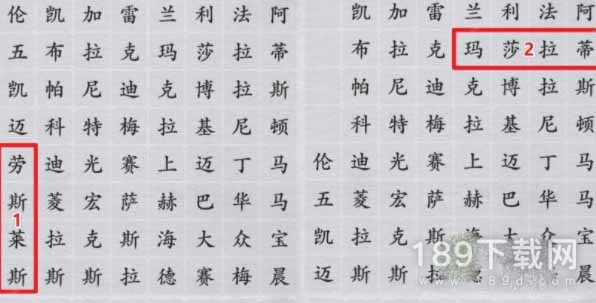 伦 凯 加 雷 兰 利 法 阿
五 布 拉 克 玛 莎 拉 蒂
凯 帕 尼 迪 克 博 拉 斯
迈 科 特 梅 拉 基 尼 顿
劳 迪 光 赛 上 迈 丁 马
斯 菱 宏 萨 赫 巴 华 马
莱 拉 克 斯 海 大 众 宝
斯 斯 斯 拉 德 赛 梅 晨
1
凯 加 雷 兰 利 法 阿
布 拉 克 玛 莎 拉 蒂
2
帕 尼 迪 克 博 拉 斯
科 特 梅 拉 基 尼 顿
伦 迪 光 赛 上 迈 丁 马
五 菱 宏 萨 赫 巴 华 马
凯 拉 克 斯 海 大 众 宝
迈 斯 斯 拉 德 赛 梅 晨
189下载网